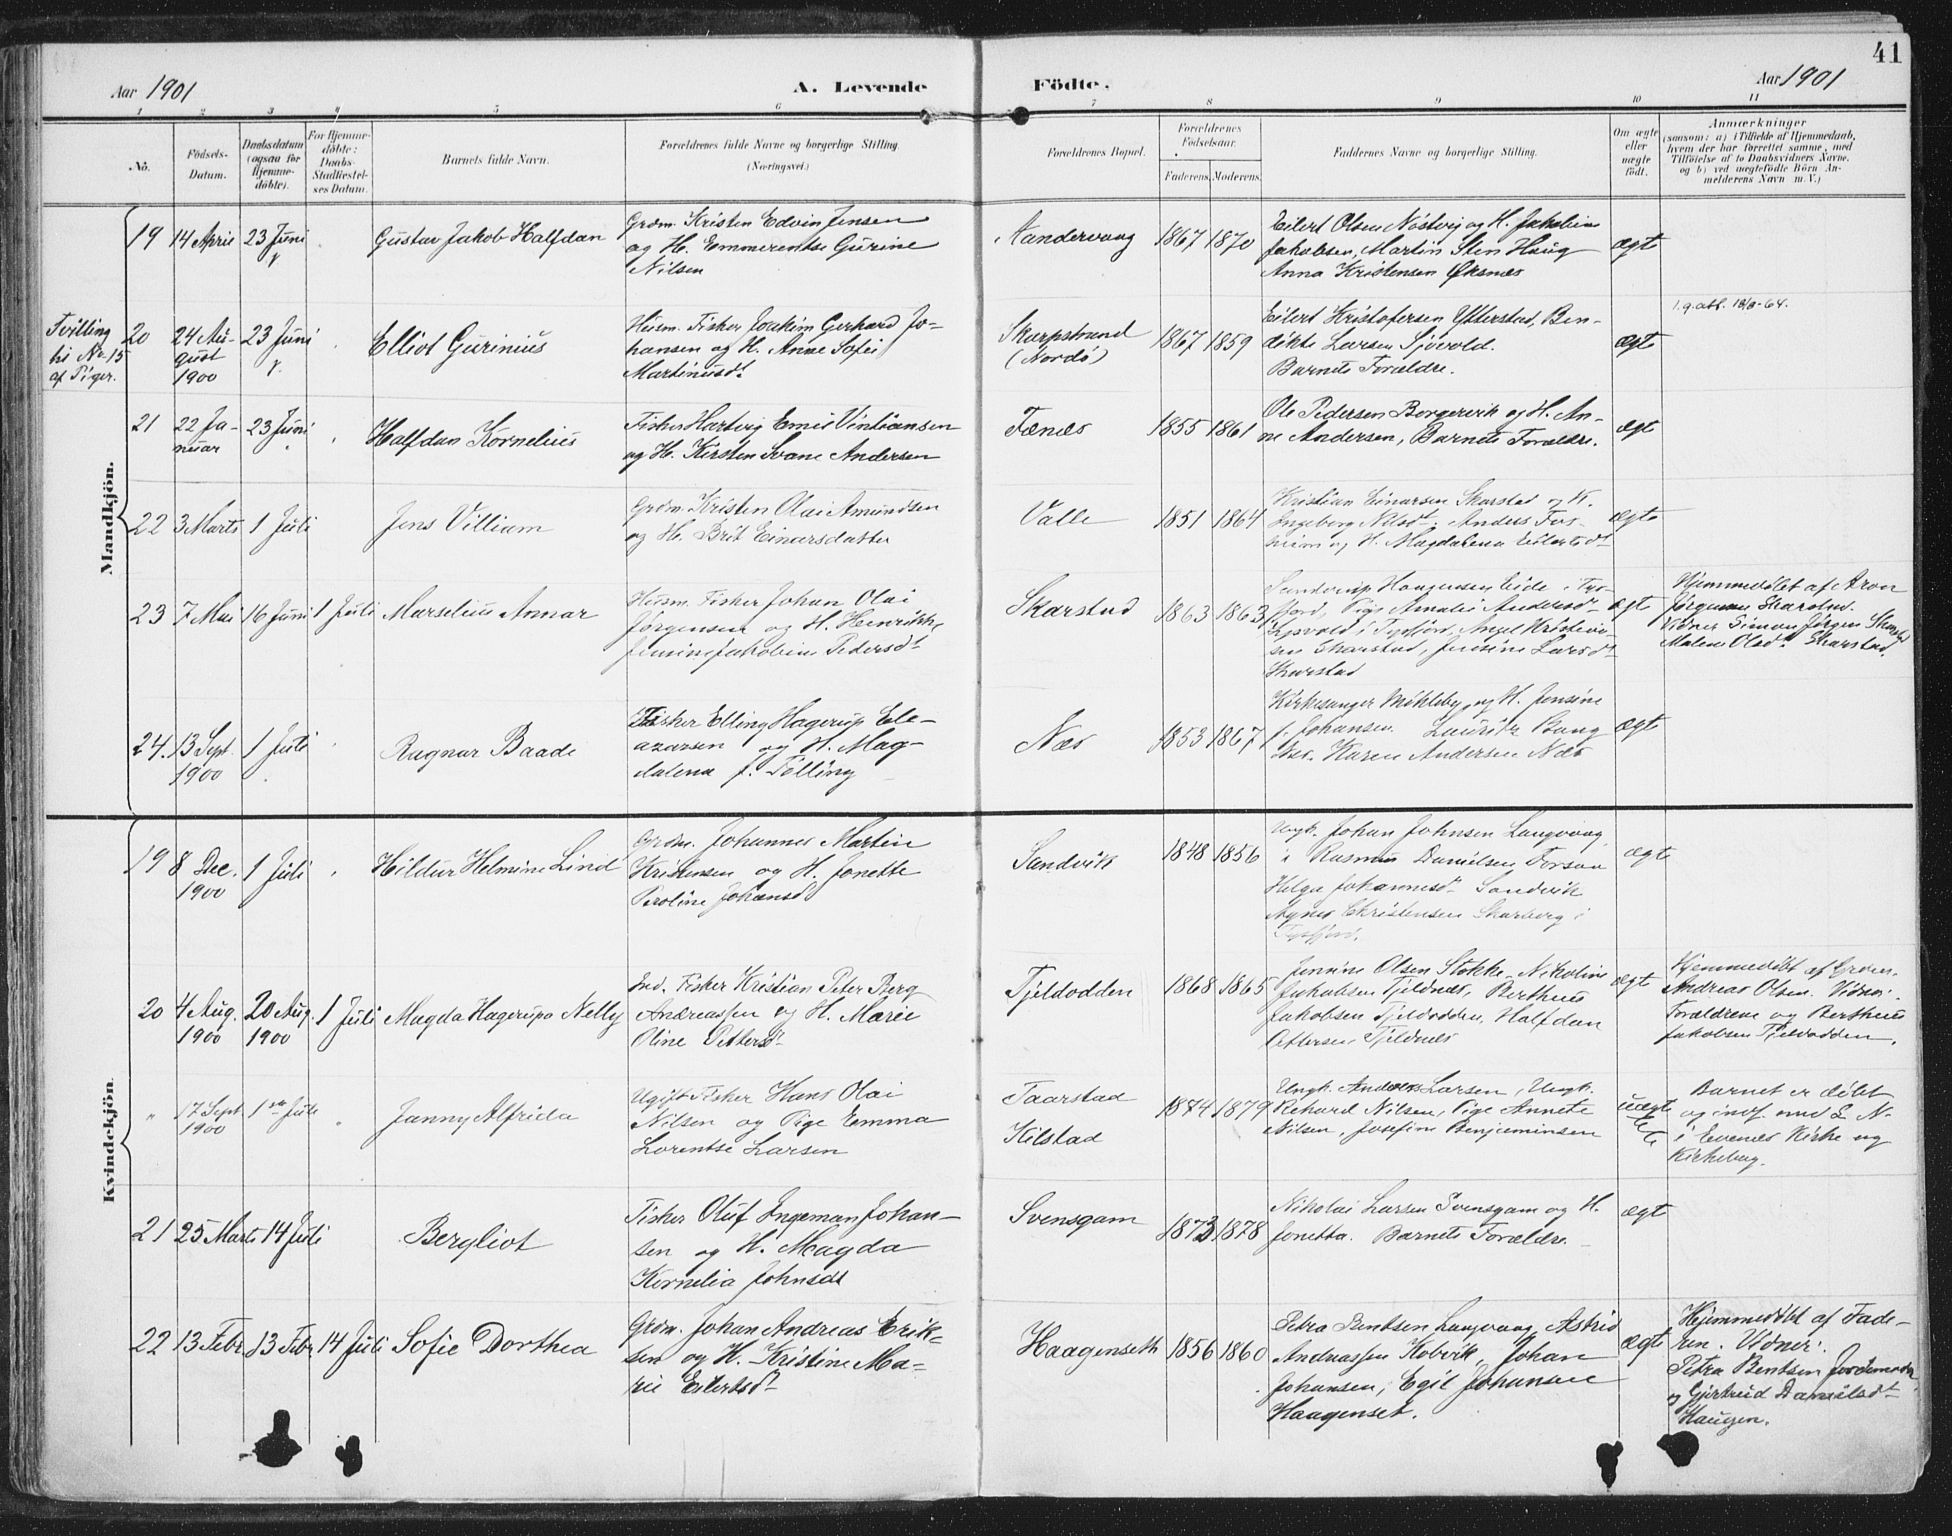 41
Aar 1901
A. Levende
Födte.
Aar 1901
1 2 3 4 5 6 7 8 9 10 11
No.
Födsels-
Datum.
Daabsdatum
(ogsaa for
Hjemme-
döbte).
For Hjemme-
döbte:
Daabs-
Stadfæstel-
ses Datum.
Barnets fulde Navn.
Forældrenes fulde Navne og borgerlige Stilling
(Næringsvei.)
Forældrenes Bopæl.
Forældrenes
Födselsaar.
Faderens. Moderens.
Faddernes Navne og borgerlige Stilling.
Om ægte
eller
uægte
födt.
Anmærkninger
(saasom: a) i Tilfælde af Hjemmedaab,
hvem der har forrettet samme, med
Tilföielse af to Daabsvidners Navne.
og b) ved uægtefödte Börn An-
melderens Navn m. V.)
Mandkjön.
19 14 April 23 Juni
Gustav Jakob Halfdan
Grdm. Kristen Edvin Jensen
og H. Emmerentse Gurine
Nilsen
Aandervaag
1867 1870
Eilert Olsen Nöstvig og H. Jakobine
Jakobsen, Martin Sten Haug
Anna Kristensen Øksnes
ægte
Tvilling
til No 15
af Piger.
20 24 Au-
gust
1900
23 Juni
Elliot Gurinius
Husm. Fisker Joakim Gerhard Jo-
hansen og H. Anne Sofie
Martinusdt
Skarpstrand
(Nordö)
1867 1859
Eilert Kristofersen Ytterstad, Ben-
dikte Larsen Sjövold.
Barnets Forældre.
ægte
21 22 Ja-
nuar
23 Juni
Halfdan Kornelius
Fisker Hartvig Emil Vintiansen
og H. Kirsten Svane Andersen
Fænes
1855 1861
Ole Pedersen Borgervik og H. An-
ne Andersen, Barnets Forældre.
ægte
22 3 Marts 1 Juli
Jens Villiam
Grdm. Kristen Olai Amundsen
og H. Brit Einarsdatter
Valle
1851 1864
Kristian Einarsen Skarstad og H.
Ingeborg Nilsdt. Anders Fors-
heim og H. Magdalena Eilertsdt
ægte
23 7 Mai 16 Juni 1 Juli
Marselius Annar
Husm. Fisker Johan Olai
Jörgensen og H. Henrikke
Jensine Jakobine Pedersdt
Skarstad
1863 1863
Haagensen Eide i Tys-
fjord, Pige Amalie Andersdt
i Tysfjord, Angel Kristian-
sen Skarstad, Jensine Larsdt
Skarstad
ægte
Hjemmedöbt af Aron
Jörgensen Skarstad.
Vidner Simon Jörgen Skarstad
Malene Olsdt Skarstad.
24. 13 Sept.
1900
1 Juli
Ragnar Baade
Fisker Elling Hagerup Ele-
azarsen og H. Mag-
dalena f. Tölling
Næs
1853 1867
Kirkesanger Mökleby og H. Jensine
f. Johansen. Lauritz Bang
Karen Andersen Næs
ægte
Kvindekjön.
19 8 Dec.
1900
1 Juli
Hildur Helmine Lind
Grdm. Johannes Martin
Kristensen og H. Jonette
Peroline Johansdt
Sandvik
1848 1856
Ungk. Johan Johnsen Langvaag
i Rasmus Danielsen Forsaa
Helga Johannesdt Sandvik
Agnes Christensen Skarberg i
Tysfjord.
ægte
20 4 Aug.
1900
20 Aug.
1900
1 Juli
Magda Hagerupa Nelly
Ind. Fisker Kristian Peter Berg
Andreassen og H. Marie
Oline Pettersdt
Tjeldodden
1868 1865
Jennine Olsen Stokke, Nikoline
Jakobsen Tjeldnes, Bertheus
Jakobsen Tjeldodden, Halfdan
Ottersen, Tjeldnes
ægte
Hjemmedöbt af Grdm.
Andreas Olsen. Vidner:
Forældrene og Bertheus
Jakobsen Tjeldodden.
" 17 Sept
1900
1ste Juli
Janny Alfrida
Ugift Fisker Hans Olai
Nilsen og Pige Emma
Lorentse Larsen
Taarstad
Kilstad
1874 1879
Ungk. Anders Larsen, Ungk.
Richard Nilsen, Pige Annete
Nilsen, Josefine Benjaminsen
uægte
Barnet er döbt
og indf. med L. N.
i Evenes Kirke og
Kirkebog.
21 25 Marts 14 Juli
Bergliot
Fisker Oluf Ingeman Johan-
sen og H. Magda
Kornelia Johnsdt
Svensgam
1873 1878
Nikolai Larsen Svensgam og H.
Jonetta. Barnets Forældre.
ægte
22 13 Febr. 13 Febr. 14 Juli
Sofie Dorthea
Grdm. Johan Andreas Erik-
sen og H. Kristine Ma-
rie Eilertsdt
Haagenseth
1856 1860
Petra Bentsen Langvaag, Astrid
Andreassen Kobvik, Johan
Johansen, Egil Johansen
Haagenset.
ægte
Hjemmedöbt af Fade-
ren. Vidner:
Petra Bentsen Jordemoder
og Gjertrud Danielsdt
Haugen.